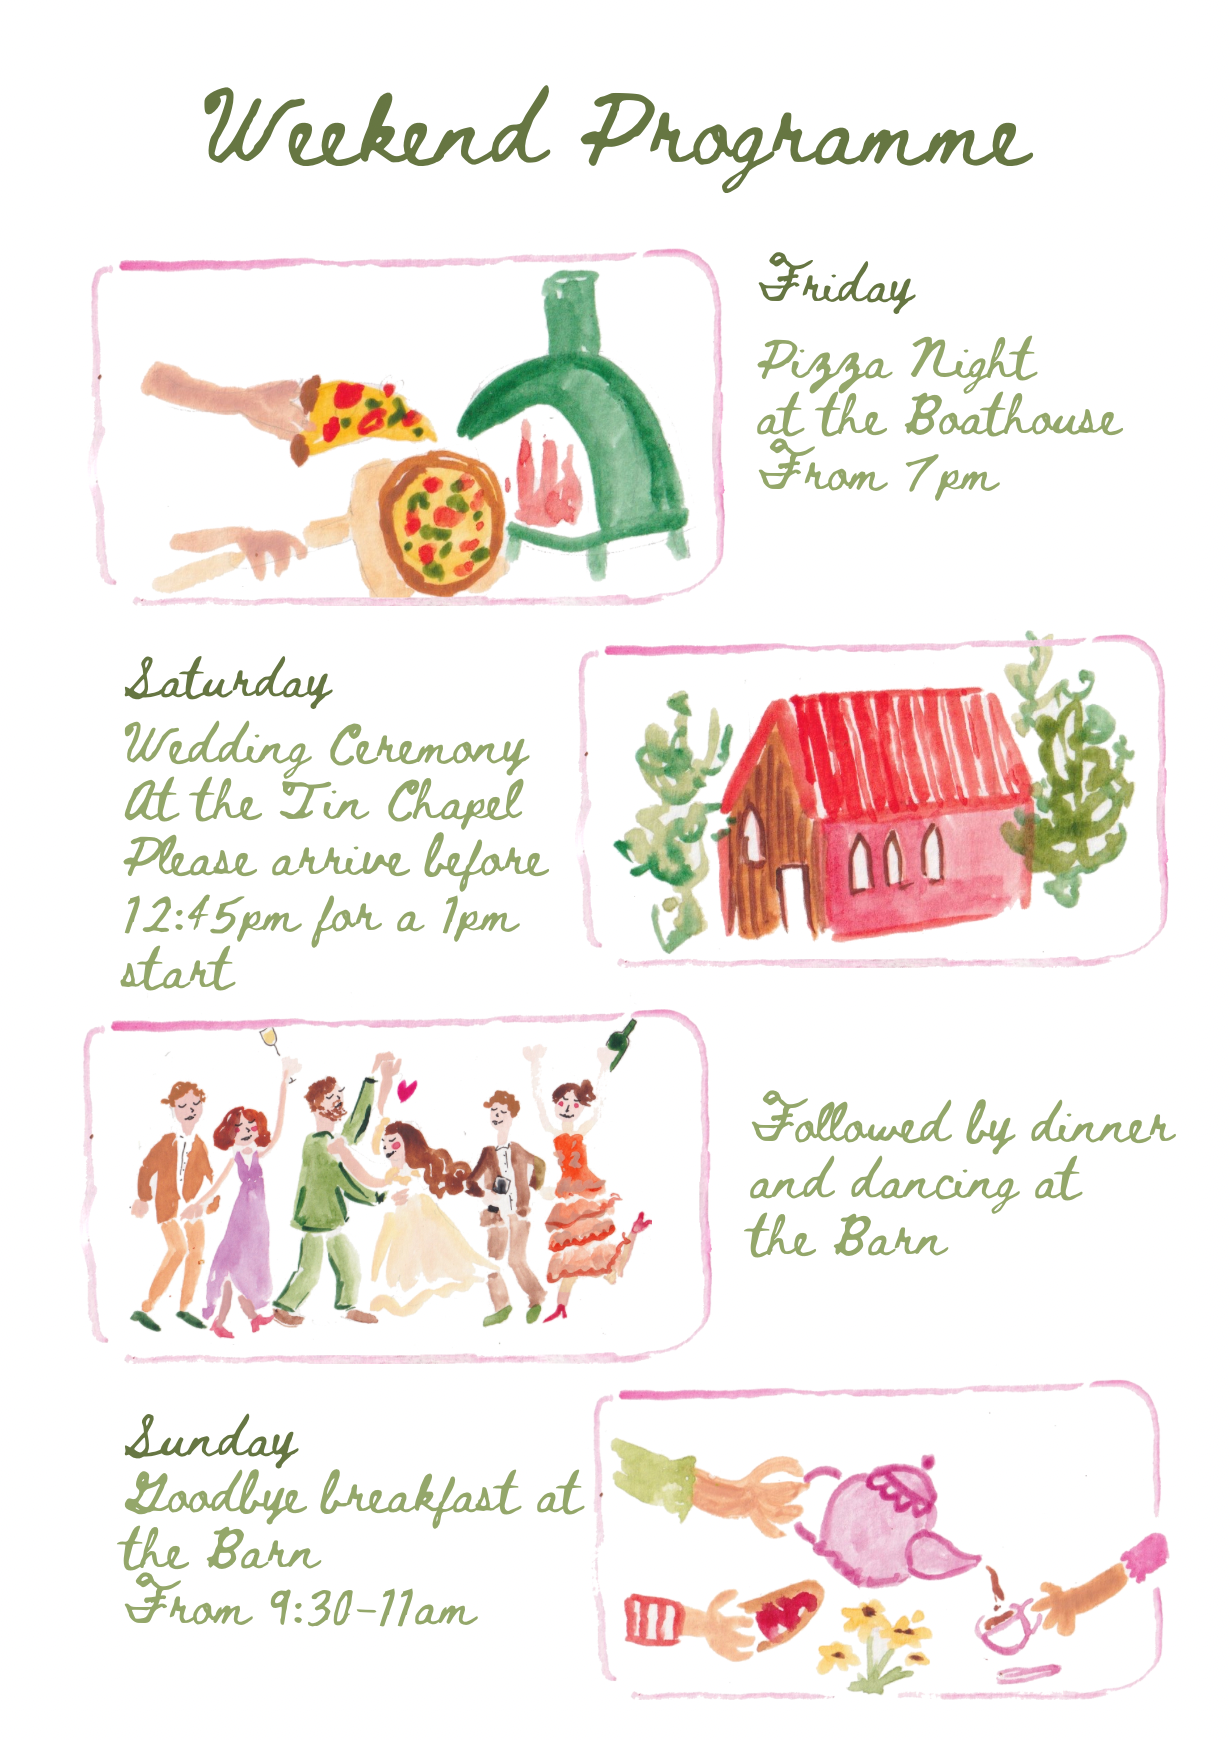 Weekend Programme
Friday
Pizza Night
at the Boathouse
From 7pm
Saturday
Wedding Ceremony
At the Tin Chapel
Please arrive before
12:45pm for a 1pm
start
Followed by dinner
and dancing at
the Barn
Sunday
Goodbye breakfast at
the Barn
From 9:30-11am